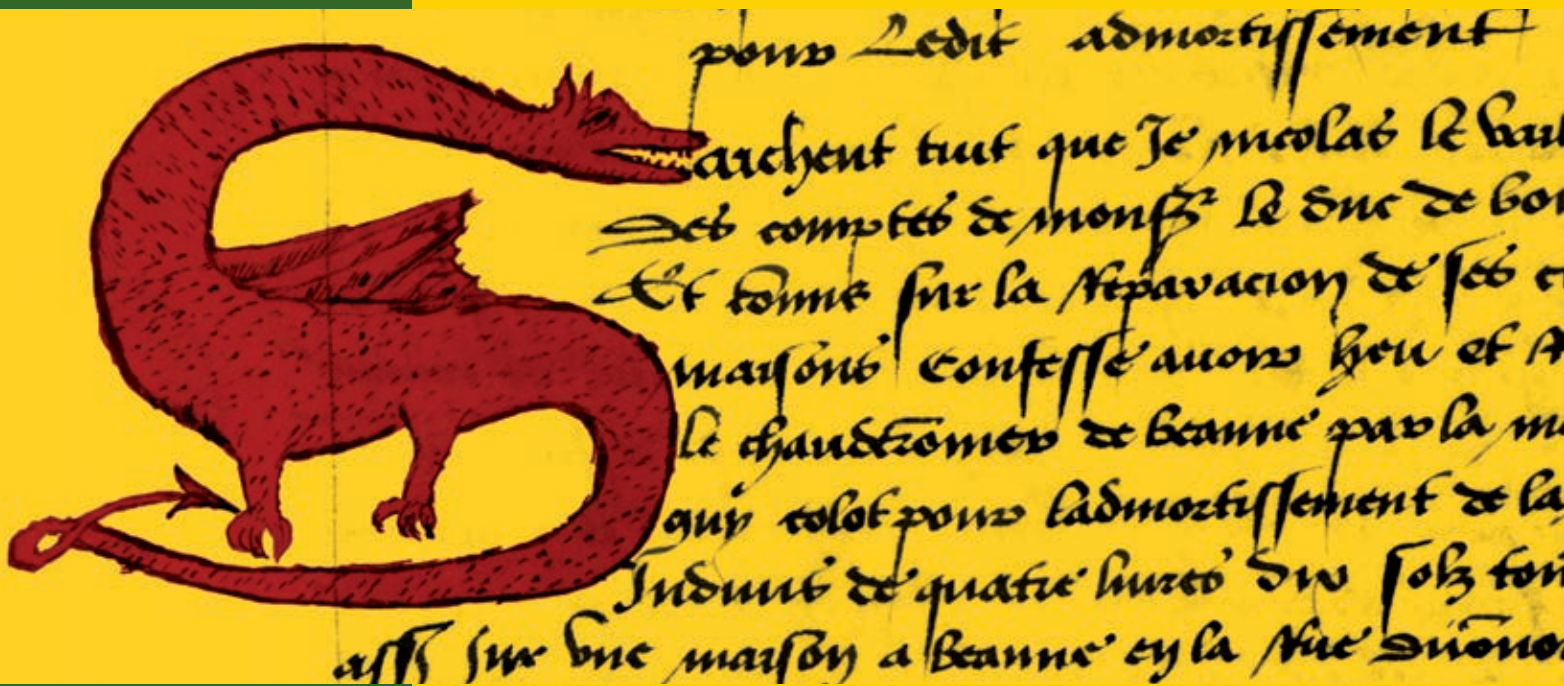 pour Ledit admortissement
Saichent tuit que Je nicolas le
Des comptes de monsr le duc de
Et comis sur la Reparacion de ses
maisons Confesse auoir heu et
le chauderōnier de beaune par la
guy colot pour ladmortissement de la
Indiuis de quatre liures dix solz
ass sur vne maison a beaune en la Rue